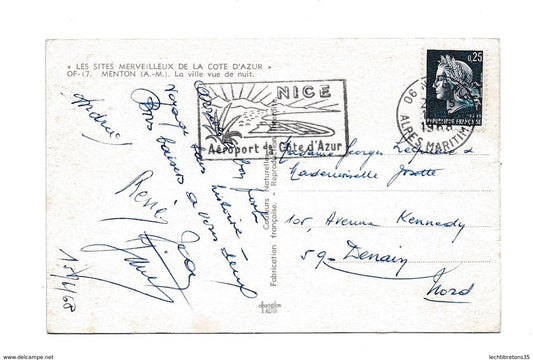 « LES SITES MERVEILLEUX DE LA COTE D'AZUR »
OF-17. MENTON (A.-M.). La ville vue de nuit.
0,25
REPUBLIQUE FRANCAISE
06
1968
ALPES MARITIMES
NICE
Aéroport de Côte d'Azur
bon
voyage sans histoire
Bons baisers à vous deux
Andrée
René
Jean
15/4/68
Couleurs Naturelles - Reproduction
Fabrication française.
Madame Georges
Mademoiselle Josette
101, Avenue Kennedy
59 - Denain
Nord
lechtibretons35